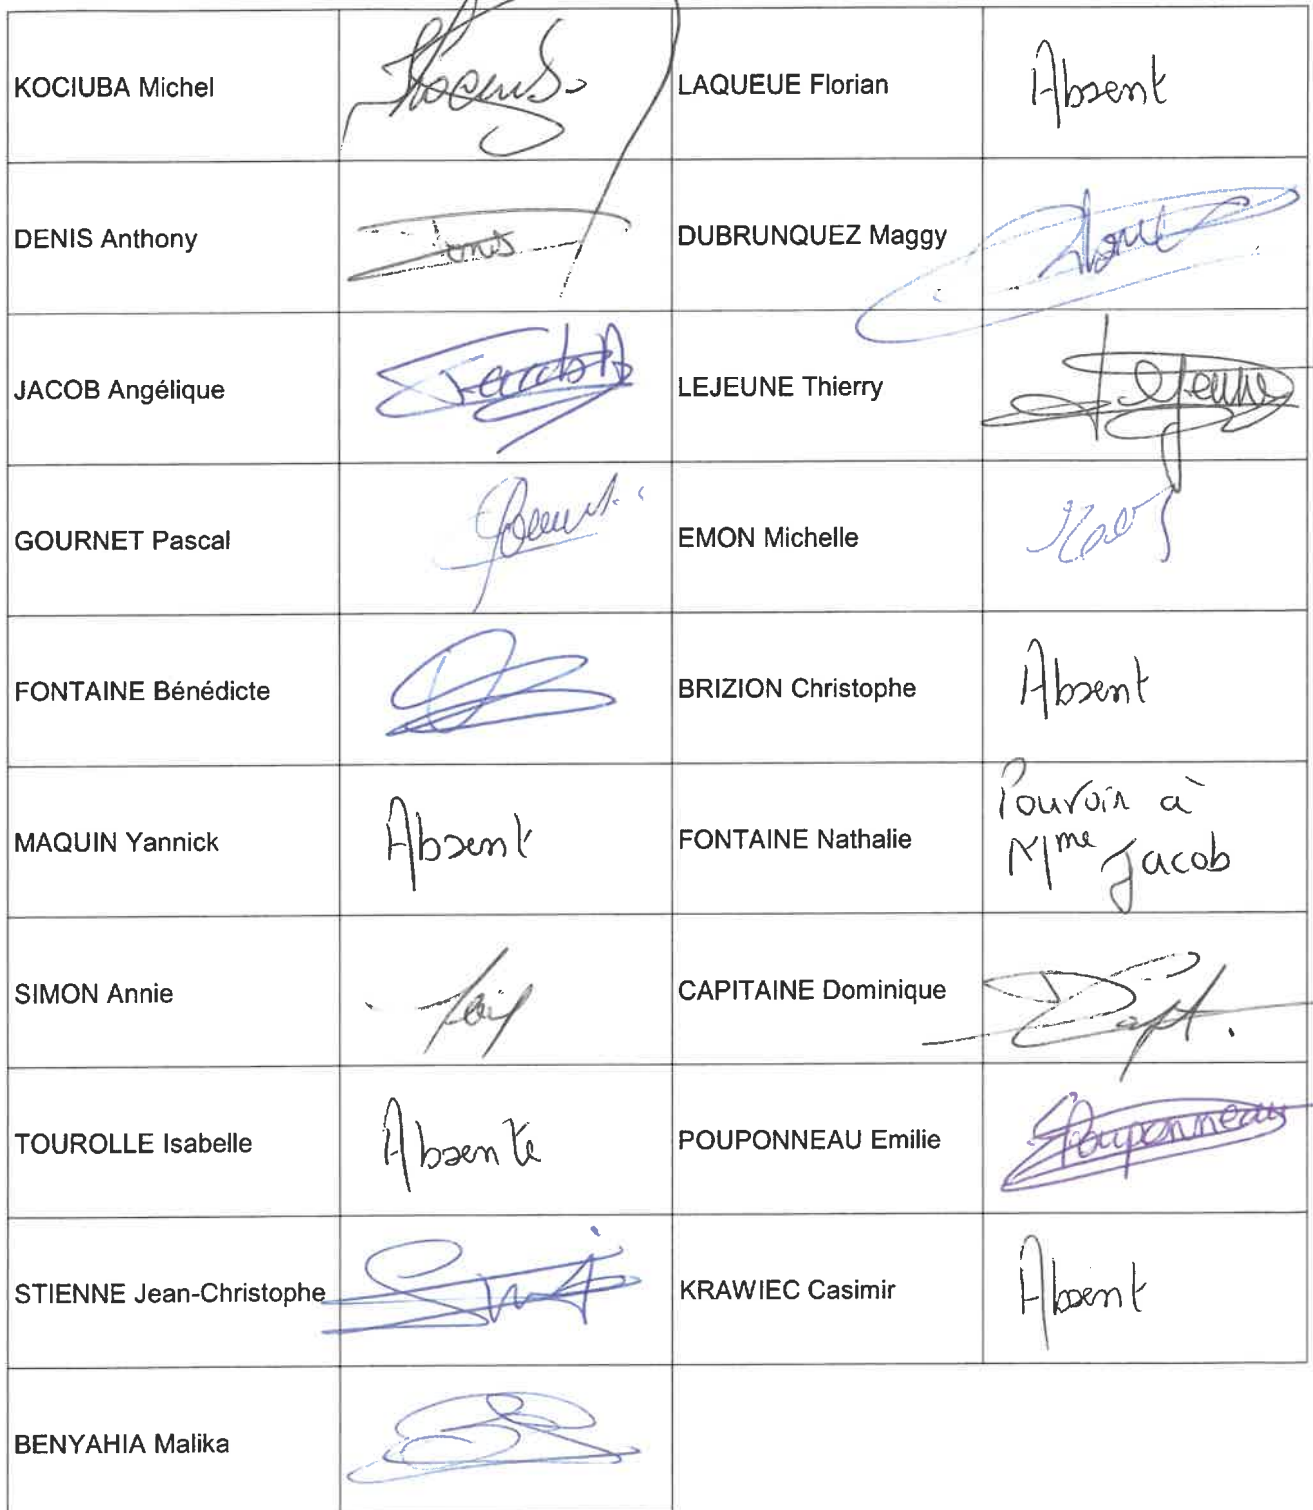 KOCIUBA Michel
LAQUEUE Florian
Absent
DENIS Anthony
Denis
DUBRUNQUEZ Maggy
JACOB Angélique
Jacob A
LEJEUNE Thierry
Lejeune
GOURNET Pascal
EMON Michelle
FONTAINE Bénédicte
BRIZION Christophe
Absent
MAQUIN Yannick
Absent
FONTAINE Nathalie
Pouvoir à
Mme Jacob
SIMON Annie
CAPITAINE Dominique
TOUROLLE Isabelle
Absente
POUPONNEAU Emilie
EPouponneau
STIENNE Jean-Christophe
KRAWIEC Casimir
Absent
BENYAHIA Malika